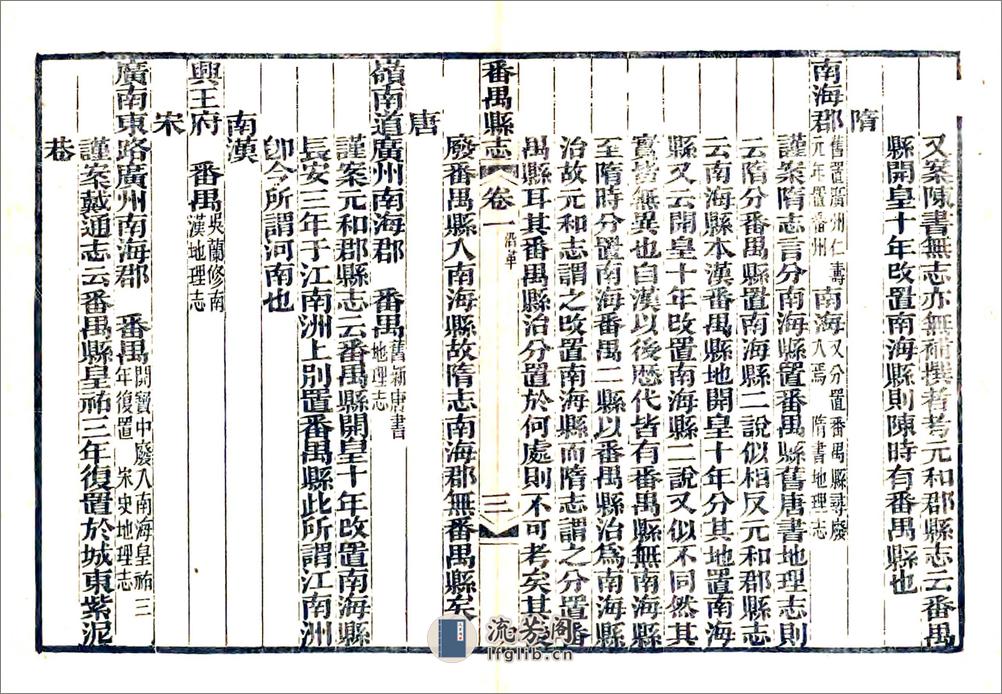 又案陳書無志亦無補撰者考元和郡縣志云番禺
縣開皇十年改置南海縣則陳時有番禺縣也
隋
南海郡舊置廣州仁壽元年置番州 南海又分置番禺縣尋廢入焉 隋書地理志
謹案隋志言分南海縣置番禺縣舊唐書地理志則
云隋分番禺縣置南海縣二說似相反元和郡縣志
云南海縣本漢番禺縣地開皇十年分其地置南海
縣又云開皇十年改置南海縣二說又似不同然其
實皆無異也自漢以後歷代皆有番禺縣無南海縣
至隋時分置南海番禺二縣以番禺縣治為南海縣
治故元和志謂之改置南海縣而隋志謂之分置番
禺縣耳其番禺縣治分置於何處則不可考矣其後
番禺縣志
卷一
沿革
三
廢番禺縣入南海縣故隋志南海郡無番禺縣矣
唐
嶺南道廣州南海郡 番禺舊新唐書地理志
謹案元和郡縣志云番禺縣開皇十年改置南海縣
長安三年于江南洲上別置番禺縣此所謂江南洲
卽今所謂河南也
南漢
興王府 番禺吳蘭修南漢地理志
宋
廣南東路廣州南海郡 番禺開寶中廢入南海皇祐三年復置 宋史地理志
謹案戴通志云番禺縣皇祐三年復置於城東紫泥
巷
流芳阁
lfglib.cn